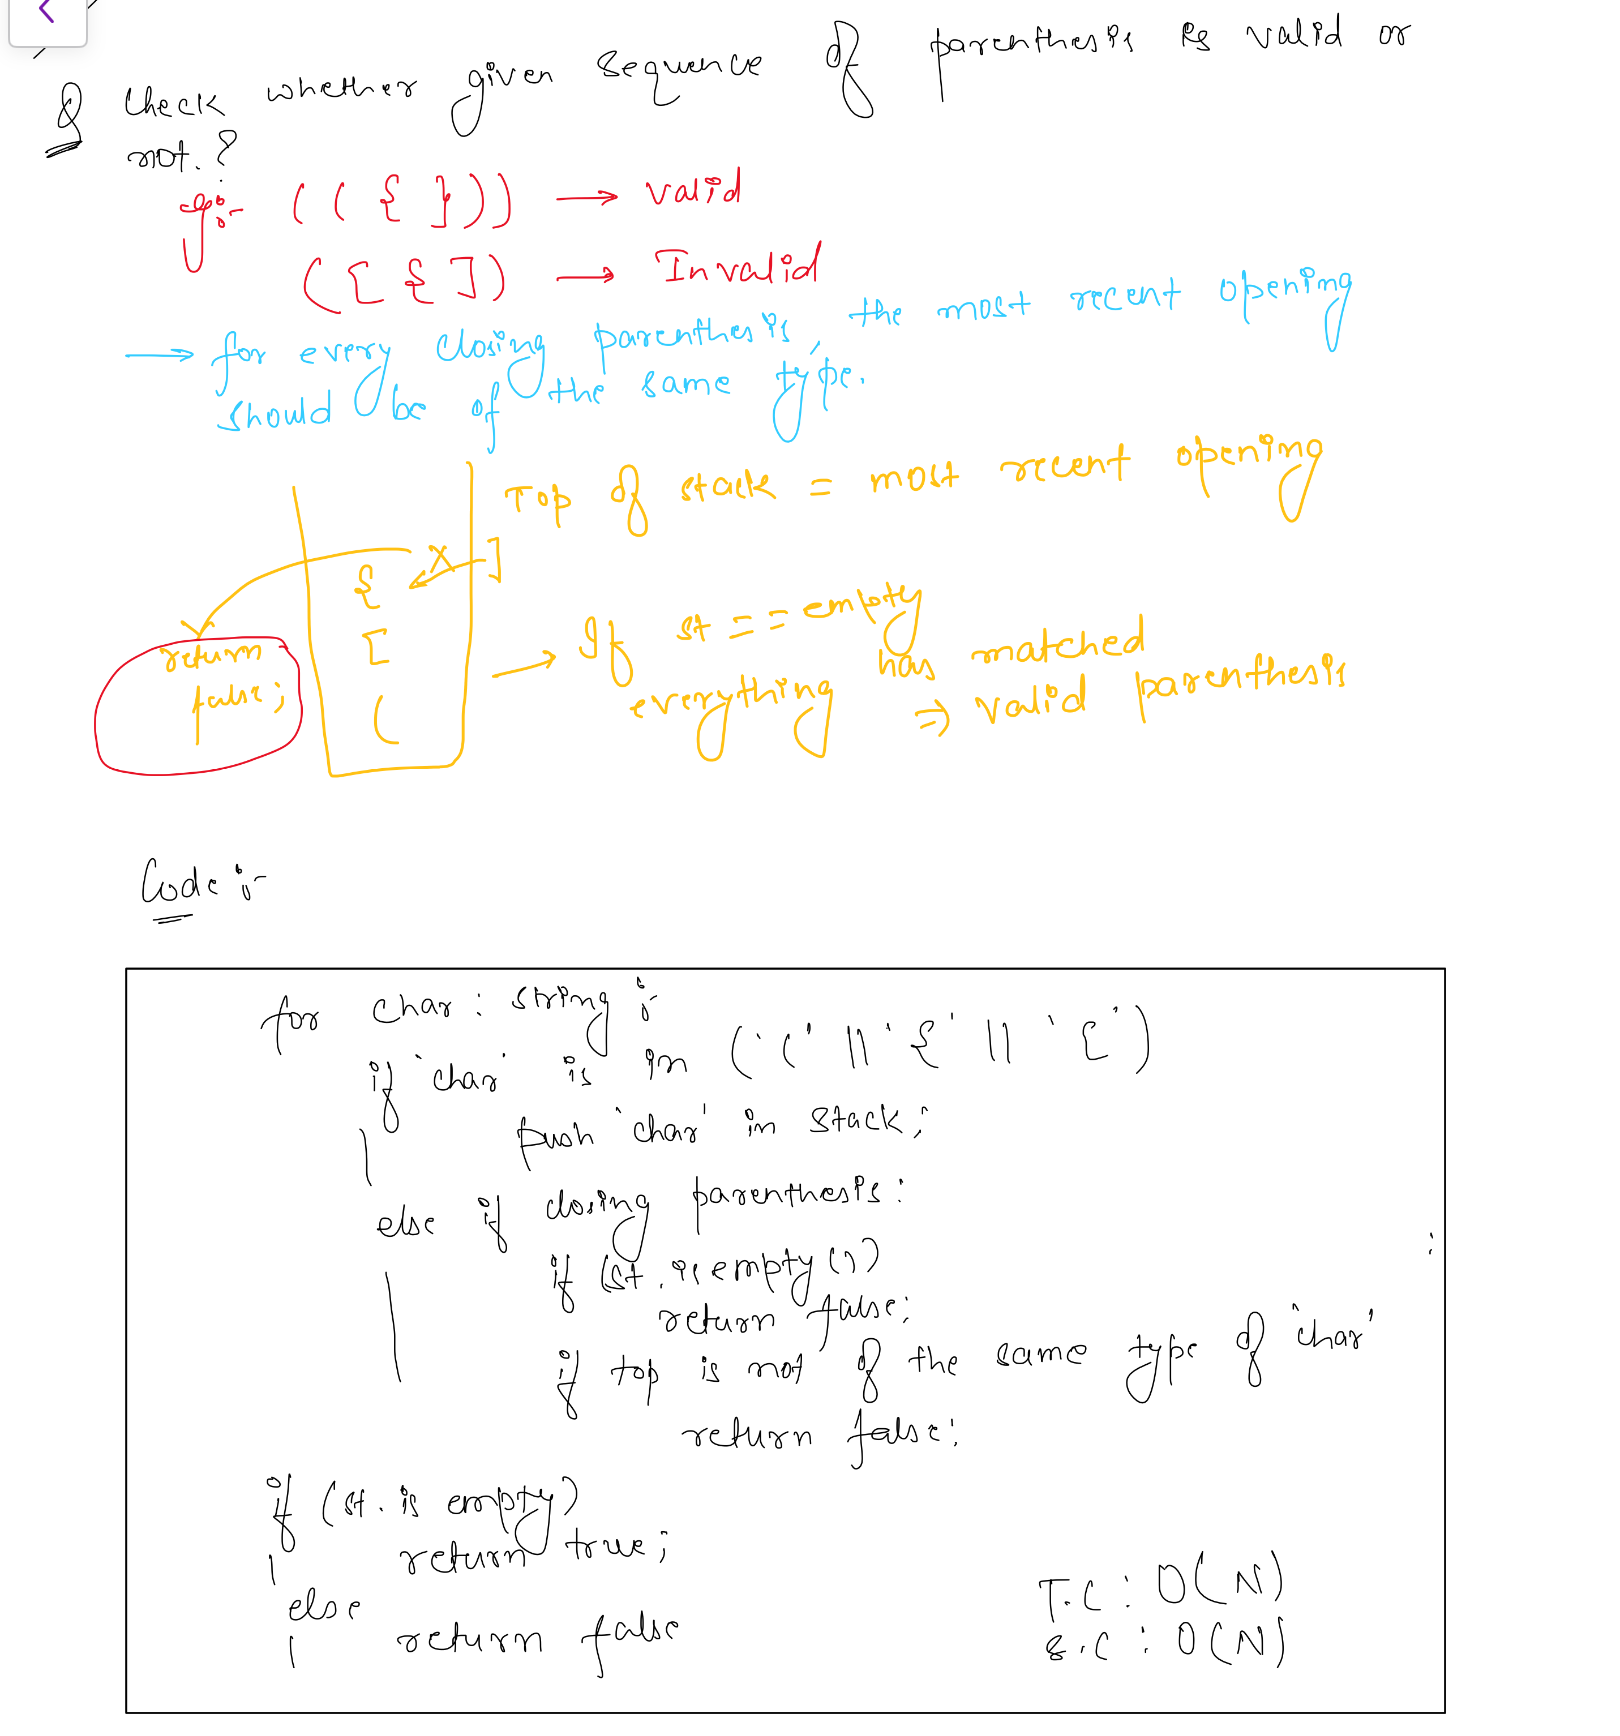 Q Check whether given sequence of parenthesis is valid or
not.?
eg:- ( ( { } ) ) → valid
( [ { ] ) → Invalid
→ for every closing parenthesis, the most recent opening
should be of the same type.
Top of stack = most recent opening
{ X ]
[
(
return
false;
→ If st == empty
everything has matched
⇒ valid parenthesis
Code :-
for char : string :-
if 'char' is in ( '(' || '{' || '[' )
push 'char' in stack;
else if closing parenthesis :
if (st.isempty())
return false;
if top is not of the same type of 'char'
return false;
if (st. is empty)
return true;
else
return false
T.C : O(N)
S.C : O(N)